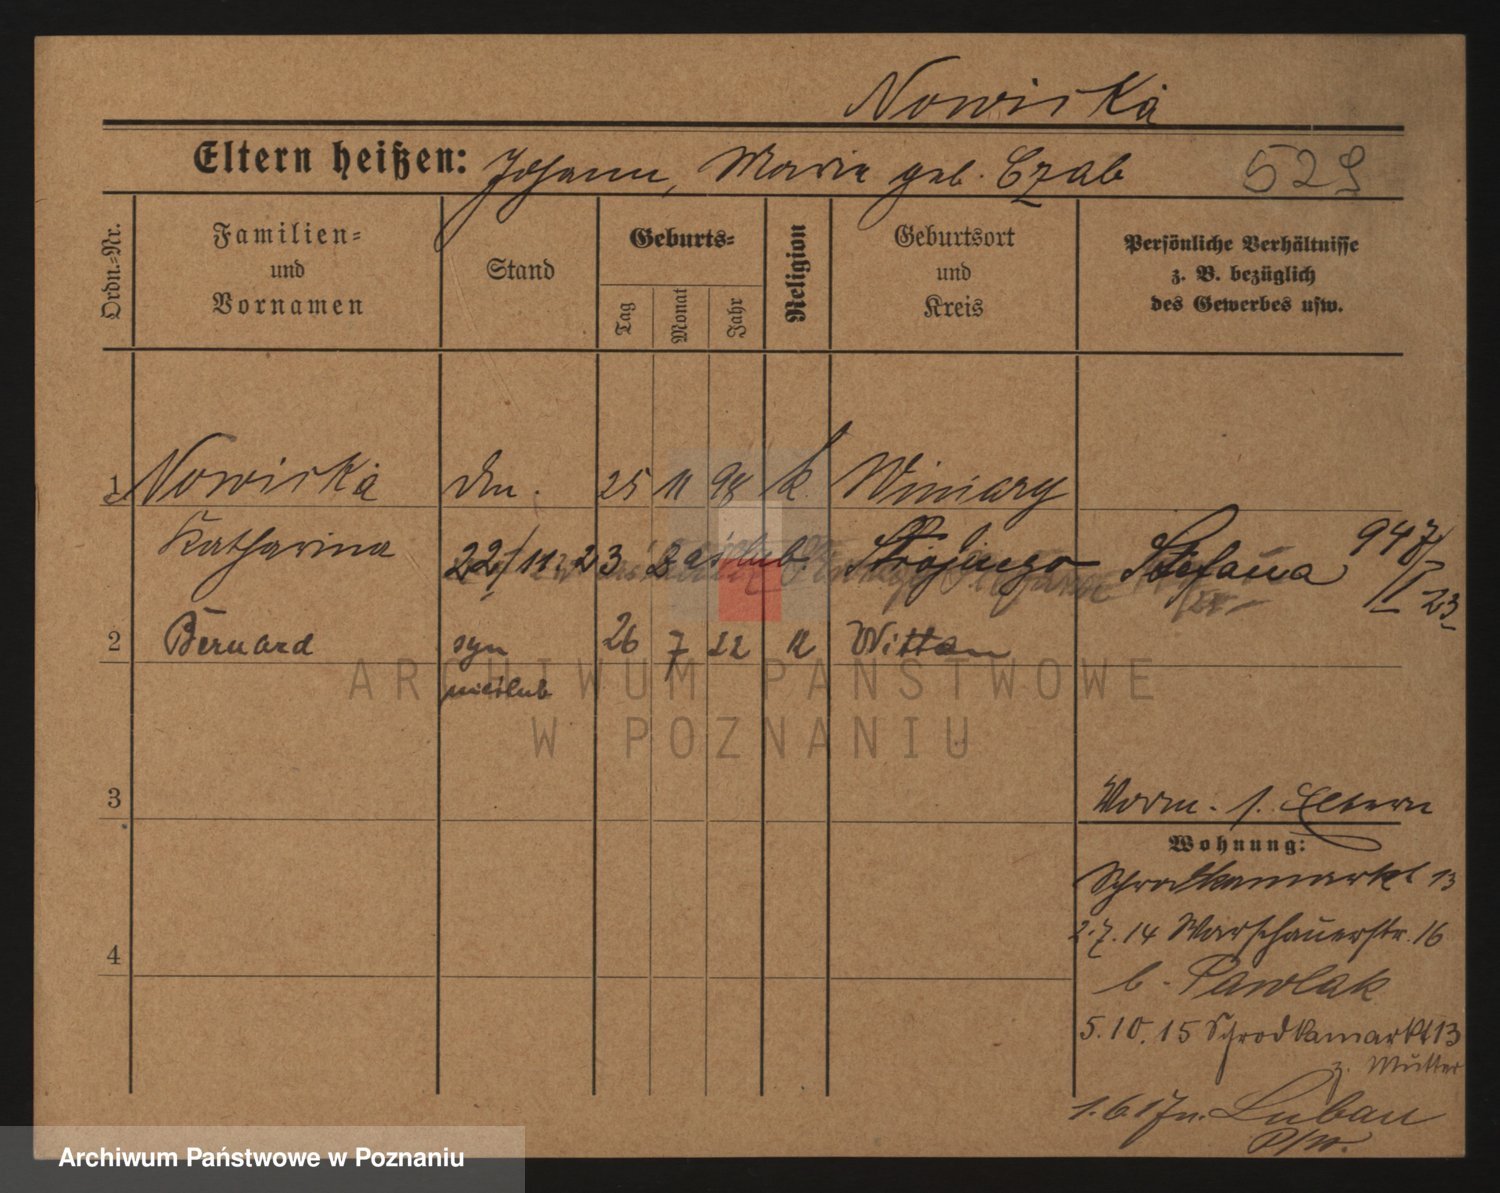 Nowicka
Eltern heißen: Johann, Marie geb. Czab
529
Ordn.=Nr.
Familien=
und
Vornamen
Stand
Geburts=
Tag
Monat
Jahr
Religion
Geburtsort
und
Kreis
Persönliche Verhältnisse
z. B. bezüglich
des Gewerbes usw.
1 Nowicka 25 11 98 k. Winiary
Katharina
22/11.23 zaślub. Stefana 947/II 23
2 Bernard syn 26 7 22 k Wittan
nieślub
ARCHIWUM PAŃSTWOWE
W POZNANIU
3
Vorm. s. Eltern
Wohnung:
Schrodkamarkt 13
2.7.14 Warschauerstr. 16
b. Pawlak
4
5.10.15 Schrodkamarkt 13
z. Mutter
1.6.17 n. Luban
P/W.
Archiwum Państwowe w Poznaniu